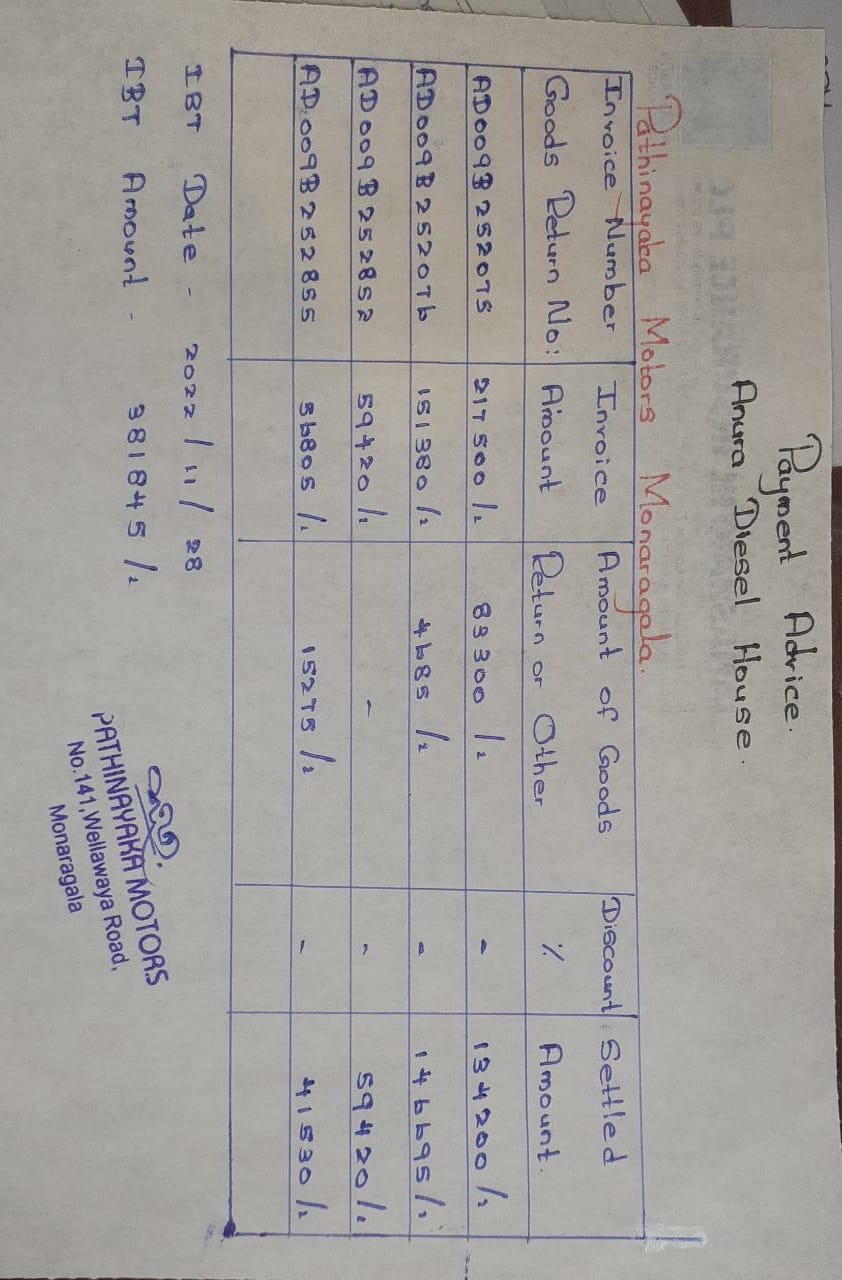 Payment Advice.
Anura Diesel House.
Pathinayaka Motors Monaragala.
Invoice Number Invoice Amount of Goods Discount Settled
Goods Return No: Amount Return or Other % Amount.
AD009B252075 217500/= 83300/= - 134200/=
AD009B252076 151380/= 4685/= - 146695/=
AD009B252852 59420/= - - 59420/=
AD009B252855 56805/= 15275/= - 41530/=
IBT Date - 2022/11/28
IBT Amount - 381845/=
PATHINAYAKA MOTORS
No.141, Wellawaya Road,
Monaragala